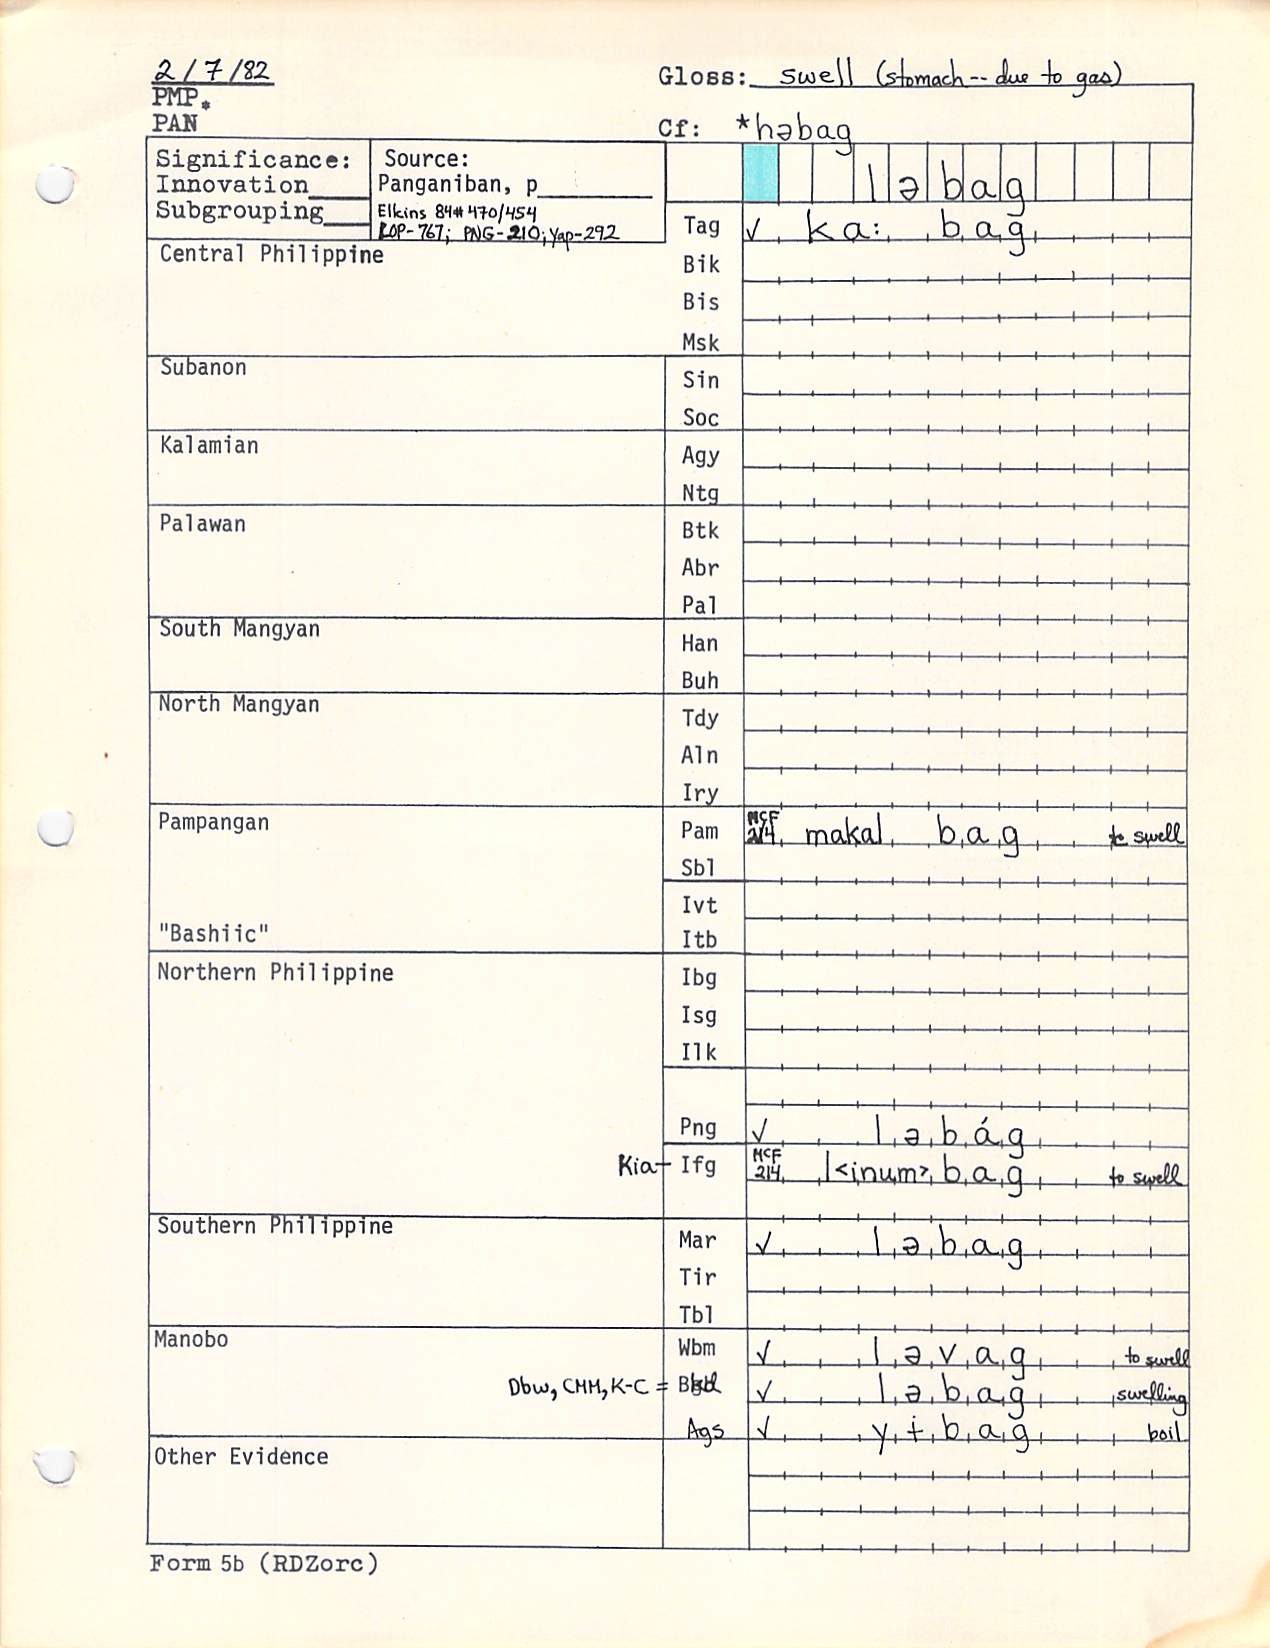 2/7/82
Gloss: swell (stomach -- due to gas)
PMP*
PAN
Cf: *həbag
Significance:
Innovation
Subgrouping
Source:
Panganiban, p
Elkins 84# 470/454
LOP-767; PNG-210; Yap-292
ləbag
Tag ✓ ka: bag
Central Philippine
Bik
Bis
Msk
Subanon
Sin
Soc
Kalamian
Agy
Ntg
Palawan
Btk
Abr
Pal
South Mangyan
Han
Buh
North Mangyan
Tdy
Aln
Iry
Pampangan
Pam MCF 214 makal bag to swell
Sbl
Ivt
"Bashiic" Itb
Northern Philippine
Ibg
Isg
Ilk
Png ✓ ləbág
Kia- Ifg MCF 214 l<inum>bag to swell
Southern Philippine
Mar ✓ ləbag
Tir
Tbl
Manobo
Wbm ✓ ləvag to swell
Dbw, CMM, K-C = ✓ ləbag swelling
Ags ✓ yɨbag boil
Other Evidence
Form 5b (RDZorc)